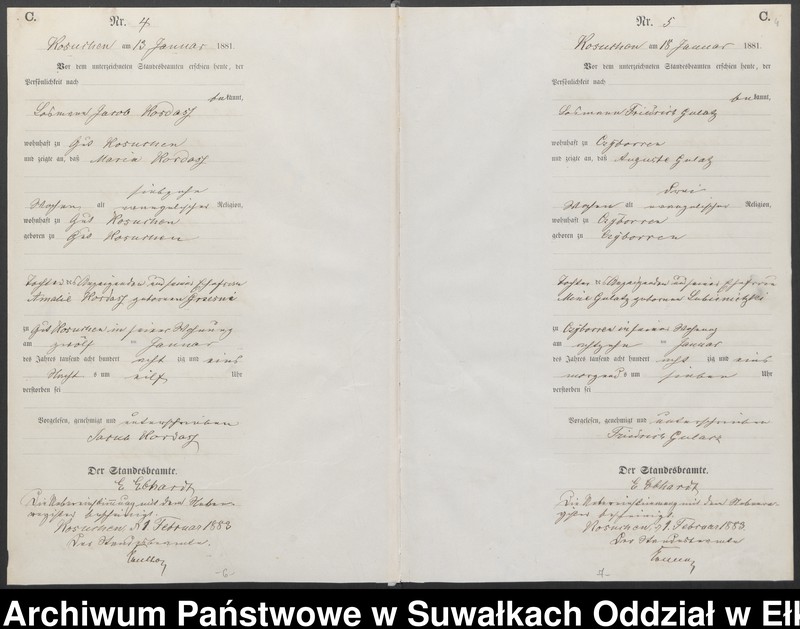 C.
Nr. 4
Kosuchen am 13 Januar 1881.
Vor dem unterzeichneten Standesbeamten erschien heute, der
Persönlichkeit nach
bekannt,
Losmann Jacob Kordaß
wohnhaft zu Gut Kosuchen
und zeigte an, daß Maria Kordaß
siebzehn
Wochen alt evangelischer Religion,
wohnhaft zu Gut Kosuchen
geboren zu Gut Kosuchen
Tochter des Anzeigenden und seiner Ehefrau
Amalie Kordaß geborenen
zu Gut Kosuchen in seiner Wohnung
am zwölf ten Januar
des Jahres tausend acht hundert acht zig und eins
Nachts um eilf Uhr
verstorben sei
Vorgelesen, genehmigt und unterschrieben
Jacob Kordaß
Der Standesbeamte.
E Ebhardt
Die Uebereinstimmung mit dem Haupt-
register bescheinigt.
Kosuchen, Februar 1883
Der Standesbeamte.
6
C.
Nr. 5
Kosuchen am 18 Januar 1881.
Vor dem unterzeichneten Standesbeamten erschien heute, der
Persönlichkeit nach
bekannt,
Losmann Friedrich Gulatz
wohnhaft zu Czyborren
und zeigte an, daß Auguste Gulatz
Drei
Wochen alt evangelischer Religion,
wohnhaft zu Czyborren
geboren zu Czyborren
Tochter des Anzeigenden und seiner Ehefrau
Mine Gulatz geborenen
zu Czyborren in seiner Wohnung
am achtzehn ten Januar
des Jahres tausend acht hundert acht zig und eins
morgens um sieben Uhr
verstorben sei
Vorgelesen, genehmigt und unterschrieben
Friedrich Gulatz
Der Standesbeamte.
E Ebhardt
Die Uebereinstimmung mit dem Haupt-
register bescheinigt.
Kosuchen, Februar 1883.
Der Standesbeamte
7
Archiwum Państwowe w Suwałkach Oddział w Ełk